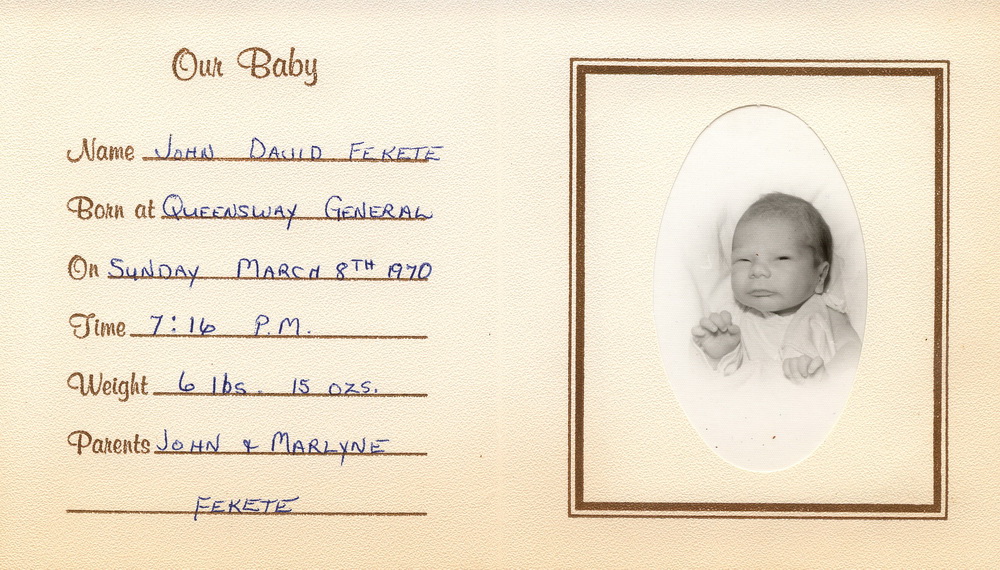 Our Baby
Name JOHN DAVID FEKETE
Born at QUEENSWAY GENERAL
On SUNDAY MARCH 8TH 1970
Time 7:16 P.M.
Weight 6 lbs. 15 OZS.
Parents JOHN & MARLYNE
FEKETE